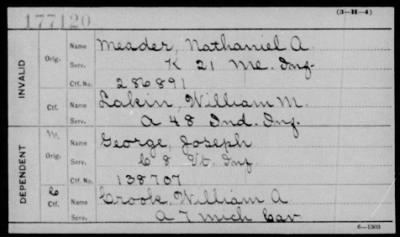 177120
(3-H-4)
INVALID
Orig. Name Meader, Nathaniel A.
Serv. K 21 Me. Inf.
Ctf. No. 286891
Ctf. Name Lakin, William M.
Serv. A 48 Ind. Inf.
DEPENDENT
Orig. Name George, Joseph
Serv. C 8 Vt. Inf.
Ctf. No. 138707
C Ctf. Name Crook, William A
Serv. A 7 Mich Cav
6-1303